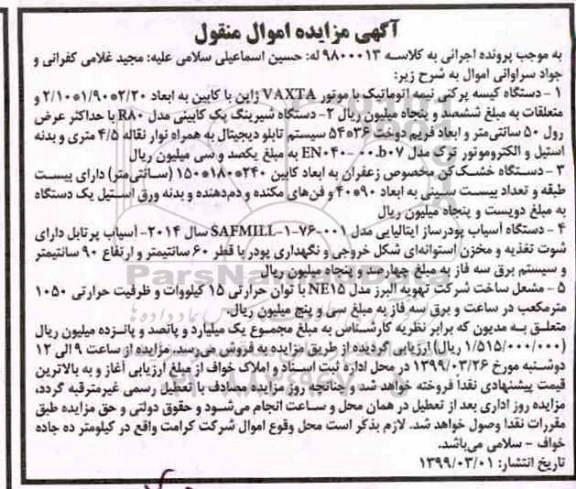 آگهی مزایده اموال منقول
به موجب پرونده اجرائی به کلاسه ۹۸۰۰۰۱۳ له: حسین اسماعیلی سلامی علیه: مجید غلامی کفرانی و
جواد سراوانی اموال به شرح زیر:
۱- دستگاه کیسه پرکنی نیمه اتوماتیک با موتور VAXTA ژاپن با کابین به ابعاد ۲/۲۰*۱/۹۰*۲/۱۰ و
متعلقات به مبلغ ششصد و پنجاه میلیون ریال ۲- دستگاه شیرینگ پک کابینی مدل R۸۰ با حداکثر عرض
رول ۵۰ سانتی‌متر و ابعاد فریم دوخت ۳۶*۵۴ سیستم تابلو دیجیتال به همراه نوار نقاله ۴/۵ متری و بدنه
استیل و الکتروموتور ترک مدل EN۰۴۰-۰۰.b۰۷ به مبلغ یکصد و سی میلیون ریال
۳- دستگاه خشک‌کن مخصوص زعفران به ابعاد کابین ۲۴۰*۱۸۰*۱۵۰ (سانتی‌متر) دارای بیست
طبقه و تعداد بیست سینی به ابعاد ۹۰*۴۰ و فن‌های مکنده و دم‌دهنده و بدنه ورق استیل یک دستگاه
به مبلغ دویست و پنجاه میلیون ریال
۴- دستگاه آسیاب پودرساز ایتالیایی مدل SAFMILL-۱-۷۶-۰۰۱ سال ۲۰۱۴- آسیاب پرتابل دارای
شوت تغذیه و مخزن استوانه‌ای شکل خروجی و نگهداری پودر با قطر ۶۰ سانتیمتر و ارتفاع ۹۰ سانتیمتر
و سیستم برق سه فاز به مبلغ چهارصد و پنجاه میلیون ریال
۵- مشعل ساخت شرکت تهویه البرز مدل NE۱۵ با توان حرارتی ۱۵ کیلووات و ظرفیت حرارتی ۱۰۵۰
مترمکعب در ساعت و برق سه فاز به مبلغ سی و پنج میلیون ریال.
متعلق به مدیون که برابر نظریه کارشناس به مبلغ مجموع یک میلیارد و پانصد و پانزده میلیون ریال
(۱/۵۱۵/۰۰۰/۰۰۰ ریال) ارزیابی گردیده از طریق مزایده به فروش می‌رسد. مزایده از ساعت ۹ الی ۱۲
دوشنبه مورخ ۱۳۹۹/۰۳/۲۶ در محل اداره ثبت اسناد و املاک خواف از مبلغ ارزیابی آغاز و به بالاترین
قیمت پیشنهادی نقداً فروخته خواهد شد و چنانچه روز مزایده مصادف با تعطیل رسمی غیرمترقبه گردد،
مزایده روز اداری بعد از تعطیل در همان محل و ساعت انجام می‌شود و حقوق دولتی و حق مزایده طبق
مقررات نقداً وصول خواهد شد. لازم بذکر است محل وقوع اموال شرکت کرامت واقع در کیلومتر ده جاده
خواف - سلامی می‌باشد.
تاریخ انتشار: ۱۳۹۹/۰۳/۰۱